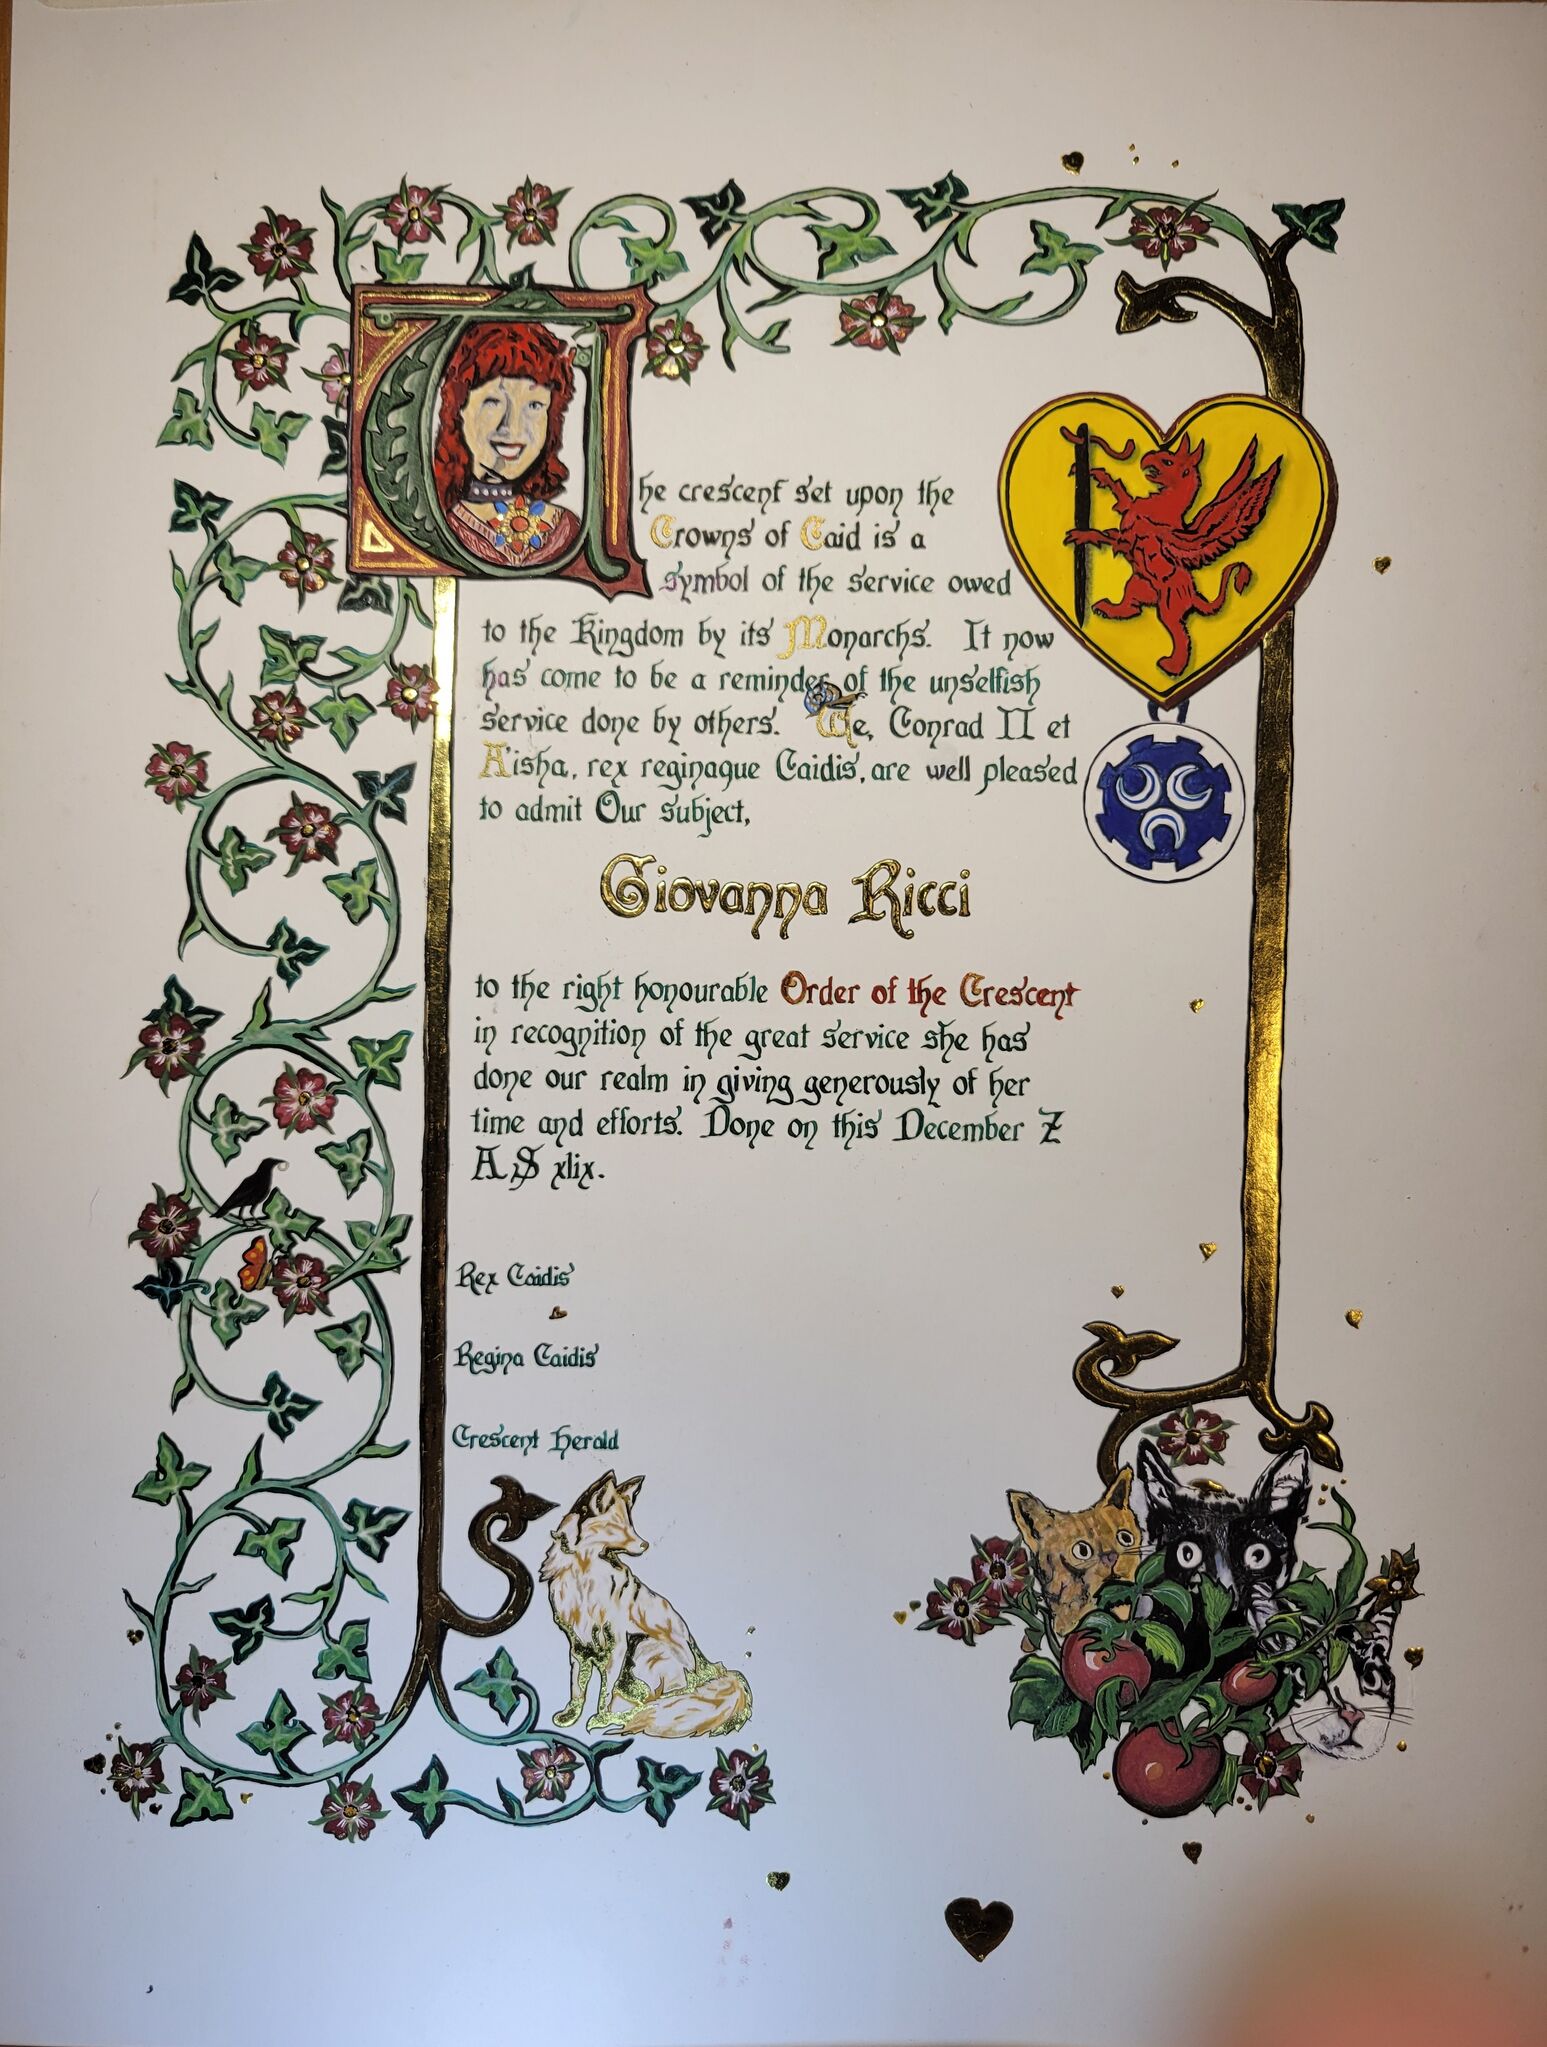 The crescent set upon the
Crowns of Caid is a
symbol of the service owed
to the Kingdom by its Monarchs. It now
has come to be a reminder of the unselfish
service done by others. We, Conrad II et
A'isha, rex reginaque Caidis, are well pleased
to admit Our subject,
Giovanna Ricci
to the right honourable Order of the Crescent
in recognition of the great service she has
done our realm in giving generously of her
time and efforts. Done on this December 7
A S xlix.
Rex Caidis
Regina Caidis
Crescent Herald